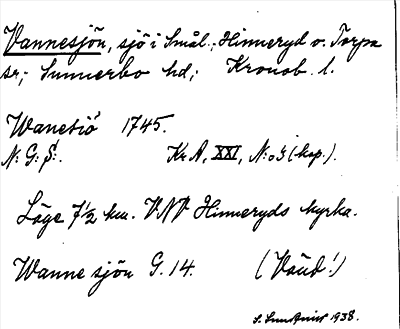 Vannesjön, sjö i Smål.; Hinneryd o. Torpa
sr; Sunnerbo hd; Kronob. l.
Wanesiö 1745.
N: G: S:. Kr A, XXI, N:o 3 (kop.).
Läge 7 1/2 km. VNV Hinneryds kyrka.
Wanne sjön G. 14. (Vänd!)
S. 1938.